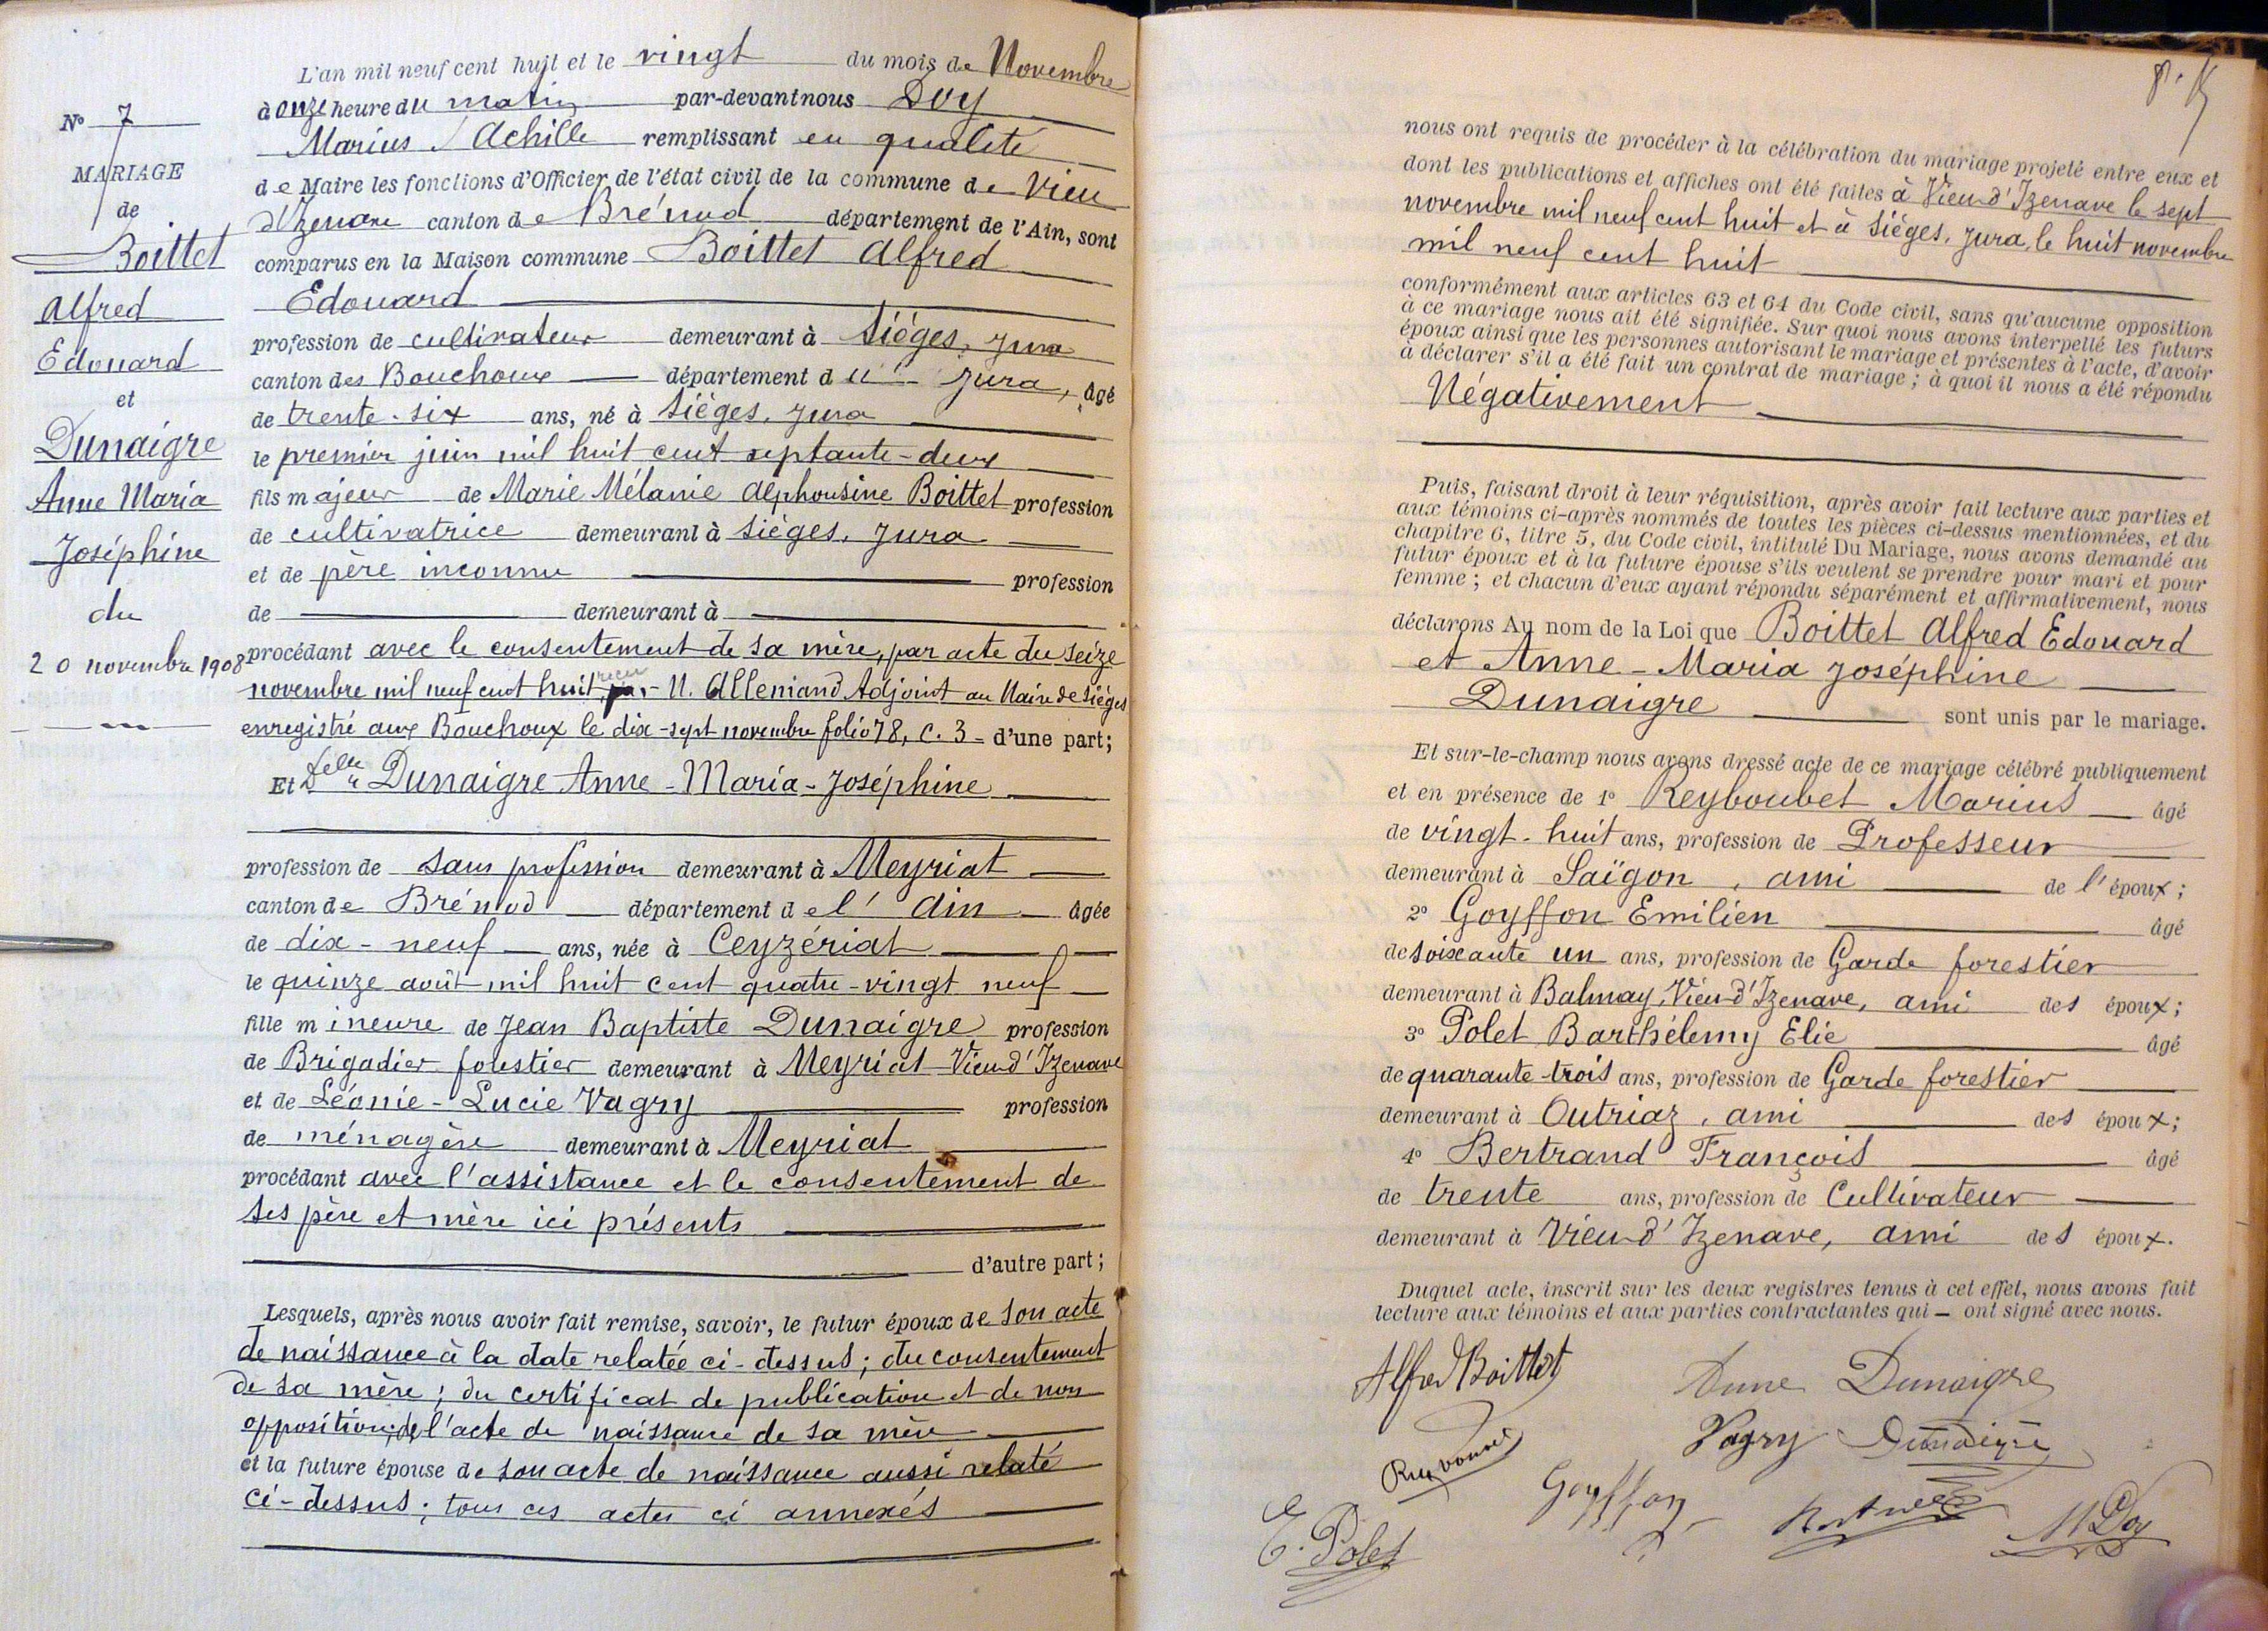 N° 7
MARIAGE
de
Boittet
Alfred
Edouard
et
Dunaigre
Anne Maria
Joséphine
du
20 novembre 1908
L'an mil neuf cent huit et le vingt du mois de Novembre
à onze heure du matin par-devant nous Doy
Marius Achille remplissant en qualité
de Maire les fonctions d'Officier de l'état civil de la commune de Vieu
d'Izenave canton de Brénod département de l'Ain, sont
comparus en la Maison commune Boittet Alfred
Edouard
profession de cultivateur demeurant à Siéges, Jura
canton des Bouchoux département du Jura, âgé
de trente-six ans, né à Siéges, Jura
le premier juin mil huit cent septante-deux
fils majeur de Marie Mélanie Alphonsine Boittet profession
de cultivatrice demeurant à Siéges, Jura
et de père inconnu profession
de demeurant à
procédant avec le consentement de sa mère, par acte du seize
novembre mil neuf cent huit, reçu M. Allemand Adjoint au Maire de Siéges
enregistré aux Bouchoux le dix-sept novembre folio 78, C. 3 - d'une part;
Et Delle Dunaigre Anne-Maria-Joséphine
profession de sans profession demeurant à Meyriat
canton de Brénod département de l'Ain âgée
de dix-neuf ans, née à Ceyzériat
le quinze août mil huit cent quatre-vingt neuf
fille mineure de Jean Baptiste Dunaigre profession
de Brigadier forestier demeurant à Meyriat-Vieu d'Izenave
et de Léonie-Lucie Vagry profession
de ménagère demeurant à Meyriat
procédant avec l'assistance et le consentement de
ses père et mère ici présents
d'autre part;
Lesquels, après nous avoir fait remise, savoir, le futur époux de son acte
de naissance à la date relatée ci-dessus; du consentement
de sa mère; du certificat de publication et de non
opposition; de l'acte de naissance de sa mère
et la future épouse de son acte de naissance aussi relaté
ci-dessus; tous ces actes ci annexés
nous ont requis de procéder à la célébration du mariage projeté entre eux et
dont les publications et affiches ont été faites à Vieu d'Izenave le sept
novembre mil neuf cent huit et à Siéges, Jura, le huit novembre
mil neuf cent huit
conformément aux articles 63 et 64 du Code civil, sans qu'aucune opposition
à ce mariage nous ait été signifiée. Sur quoi nous avons interpellé les futurs
époux ainsi que les personnes autorisant le mariage et présentes à l'acte, d'avoir
à déclarer s'il a été fait un contrat de mariage; à quoi il nous a été répondu
Négativement
Puis, faisant droit à leur réquisition, après avoir fait lecture aux parties et
aux témoins ci-après nommés de toutes les pièces ci-dessus mentionnées, et du
chapitre 6, titre 5, du Code civil, intitulé Du Mariage, nous avons demandé au
futur époux et à la future épouse s'ils veulent se prendre pour mari et pour
femme; et chacun d'eux ayant répondu séparément et affirmativement, nous
déclarons Au nom de la Loi que Boittet Alfred Edouard
et Anne-Maria Joséphine
Dunaigre sont unis par le mariage.
Et sur-le-champ nous avons dressé acte de ce mariage célébré publiquement
et en présence de 1° Reyboubet Marius âgé
de vingt-huit ans, profession de Professeur
demeurant à Saïgon, ami de l'époux;
2° Goyffon Emilien âgé
de soixante un ans, profession de Garde forestier
demeurant à Balmay, Vieu d'Izenave, ami des époux;
3° Polet Barthélemy Elie âgé
de quarante-trois ans, profession de Garde forestier
demeurant à Outriaz, ami des époux;
4° Bertrand François âgé
de trente ans, profession de Cultivateur
demeurant à Vieu d'Izenave, ami des époux.
Duquel acte, inscrit sur les deux registres tenus à cet effet, nous avons fait
lecture aux témoins et aux parties contractantes qui — ont signé avec nous.
Alfred Boittet Anne Dunaigre
Vagry Dunaigre
Goyffon
E. Polet M Doy